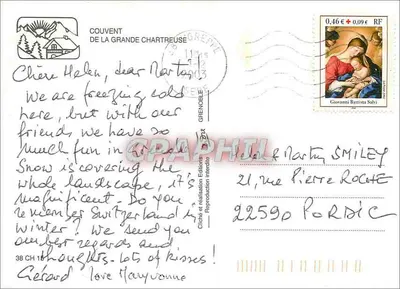 COUVENT
DE LA GRANDE CHARTREUSE
Chère Helen, dear Martin!
We are freezing cold
here, but with our
friend, we have so
much fun in
Snow is covering the
whole landscape, it's
magnificent. Do you
remember Switzerland in
winter? We send you
our best regards and
thoughts - lots of kisses!
Gérard love Maryvonne
38 CH 18
GRENOBLE
Cliché et réalisation Editions
Reproduction interdite
0,46 € + 0,09 € RF
Giovanni Battista Salvi
GRAPHIL
Helen et Martin SMILEY
21, rue Pierre ROCHE
22590 PORDIC